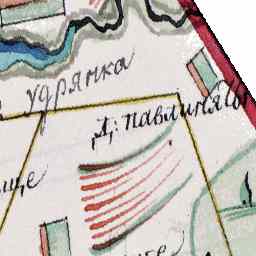 удрянка
Д: павлиняты
ще